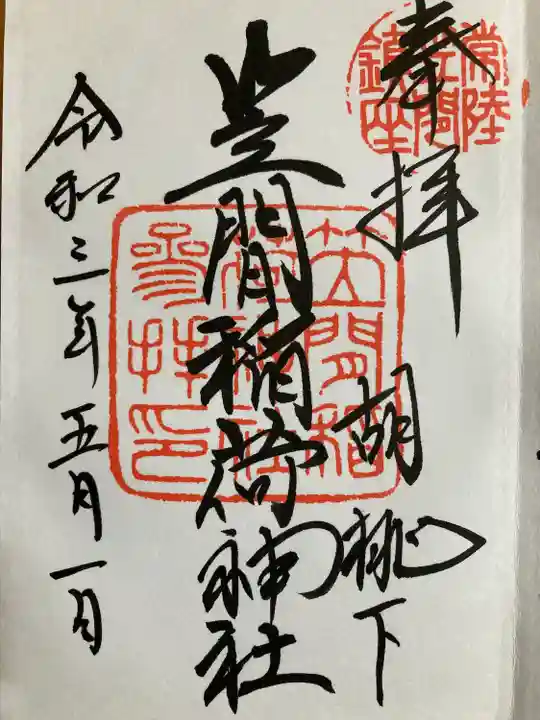 奉拝 胡桃下
笠間稲荷神社
令和三年五月一日
常陸
笠間
鎮座
笠間稲
荷神社
参拝印